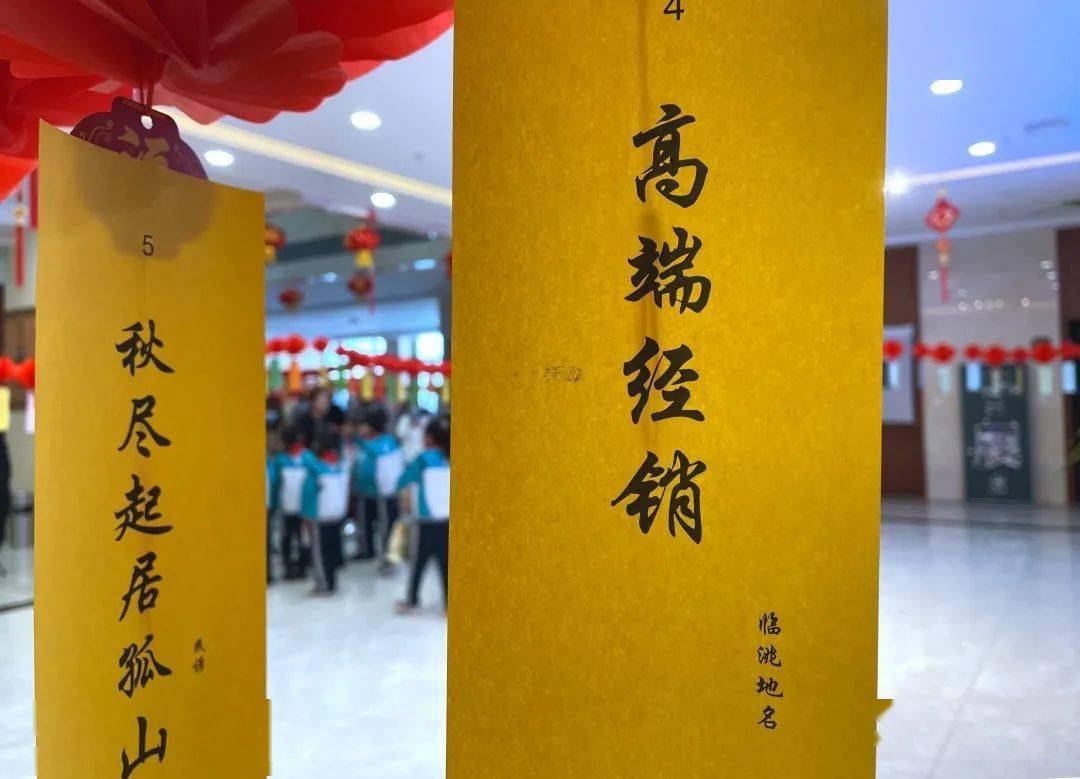 5
秋尽起居孤山
4
高端经销
临洮地名
展